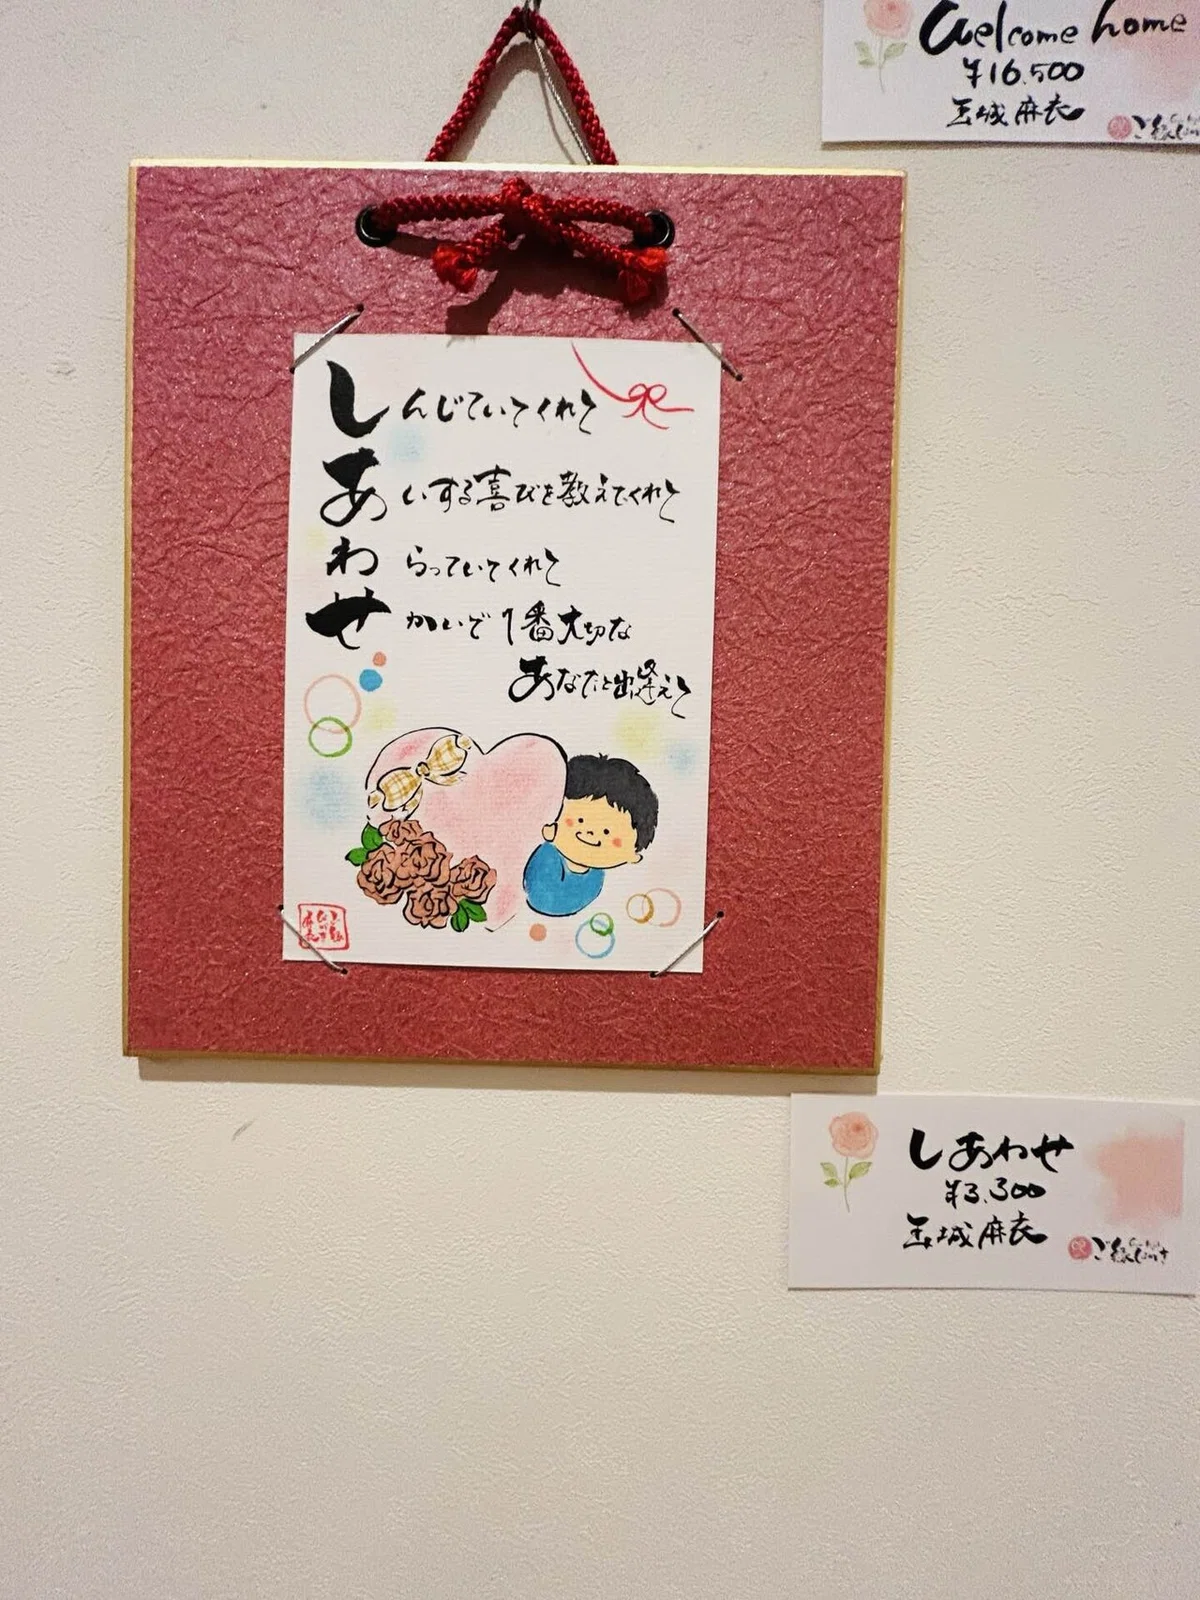 Welcome home
¥16,500
玉城麻衣
しんじていてくれて
あいする喜びを教えてくれて
わらっていてくれて
せかいで1番大切な
あなたと出逢えて
しあわせ
¥3,300
玉城麻衣